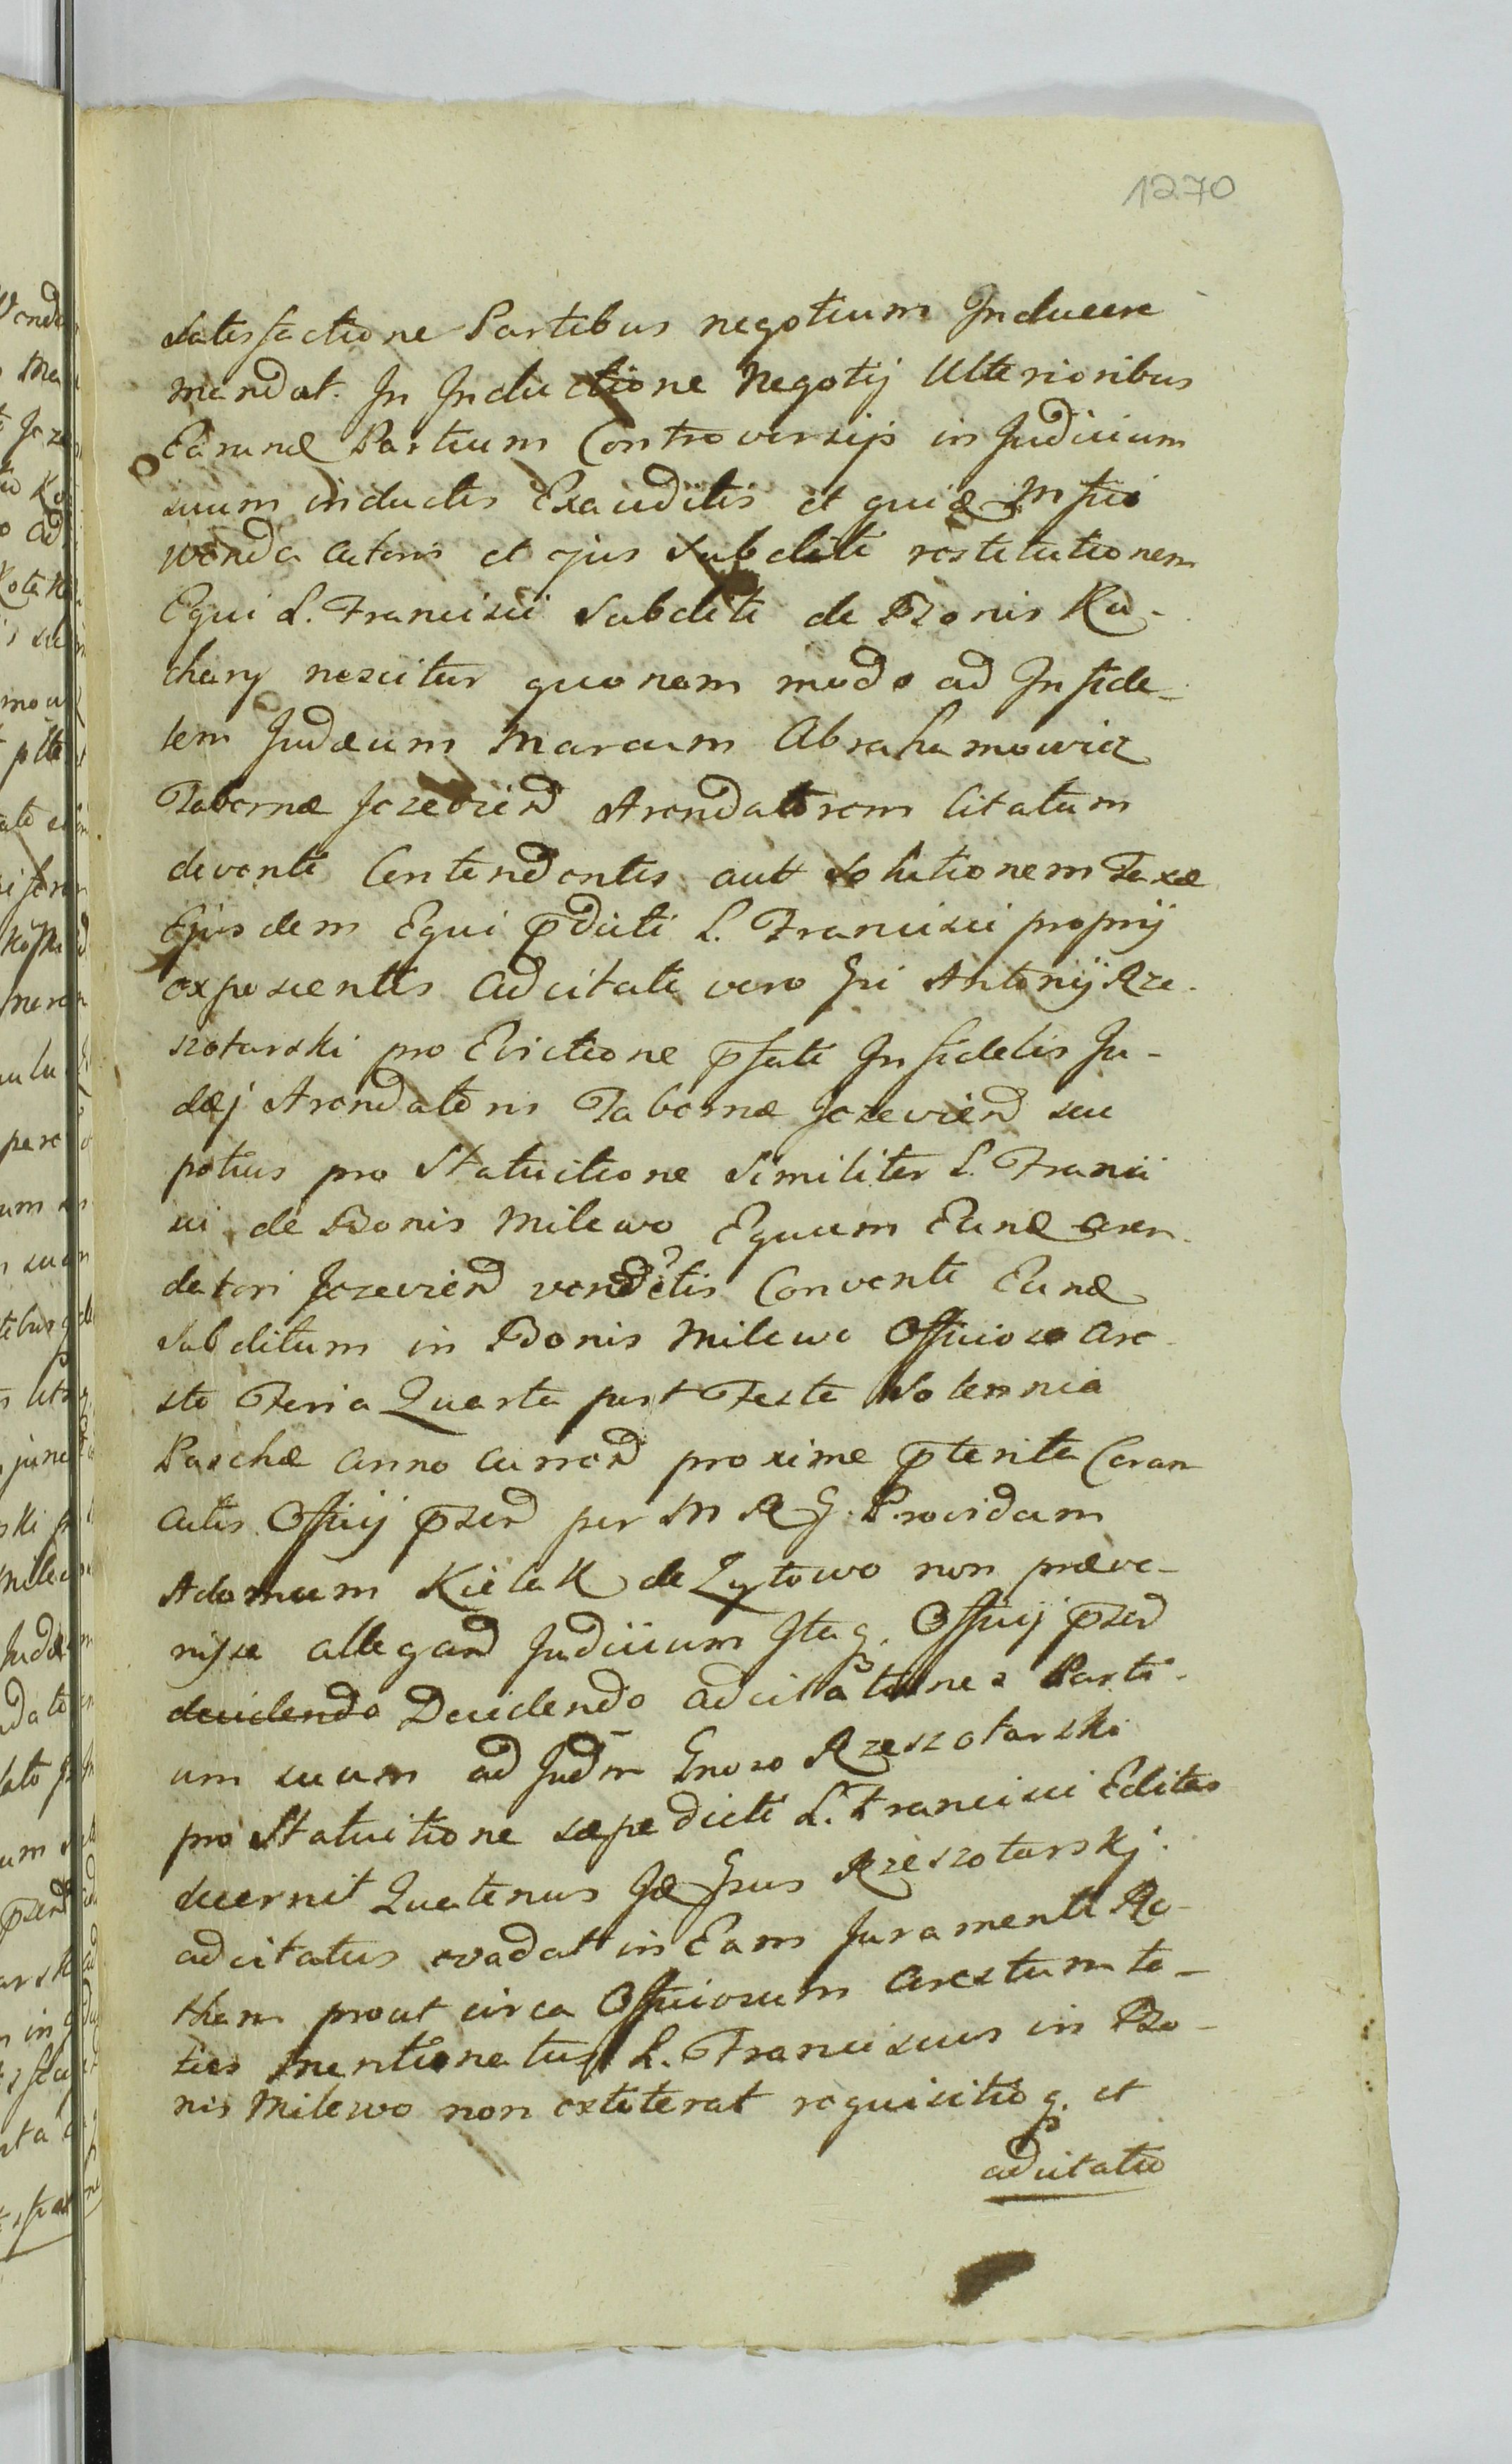 1270
Satisfactione Partibus negotium Inducere
mandat. In Inductione Negotij Ulterioribus
Earund Partium Controversijs in Judicium
suum inductis Exauditis et quia Mfici
Wenda Actoris et ejus Subditi restitutionem
Equi L. Francisci Subditi de Bonis Ku-
chary nescitur quonam modo ad Infide-
lem Judæum Marcum Abrahamowicz
Tabernæ Jezevien Arendatorem Citatum
deventi Contendentis aut Solutionem Taxæ
Ejusdem Equi p̄dicti L. Francisci proprij
exposcentis Adcitati vero Gsi Antonij Rze-
szotarski pro Evictione p̄fati Infidelis Ju-
dæj Arendatoris Tabernæ Jezevien seu
potius pro Statuitione Similiter L. Francis
ci de Bonis Milewo Equum Eund aren-
datori Jezevien venditis Conventi Eund
Subditum in Bonis Milewo Officioso are-
sto Feria Quarta post Festa Solennia
Paschæ Anno Curren proxime p̄terita Coram
Actis Officij p̄sen per M R G. Providum
Adamum Kielak de Zytowo non præve-
nisse allegan Judicium Itaq. Officij p̄sen
decidendo Decidendo adcitationes Parti-
um suum ad Judm Gnoso Rzeszotarski
pro Statuitione sæpedicti L. Francisci Editas
decernit Quatenus Idē Gsus Rzeszotarskj
adcitatus evadat in Eam Juramenti Ro-
tham prout circa Officiosum Arestum to-
ties Mentionatus L. Franciscus in Bo-
nis Milewo non extiterat requisitioq. et
adcitatio